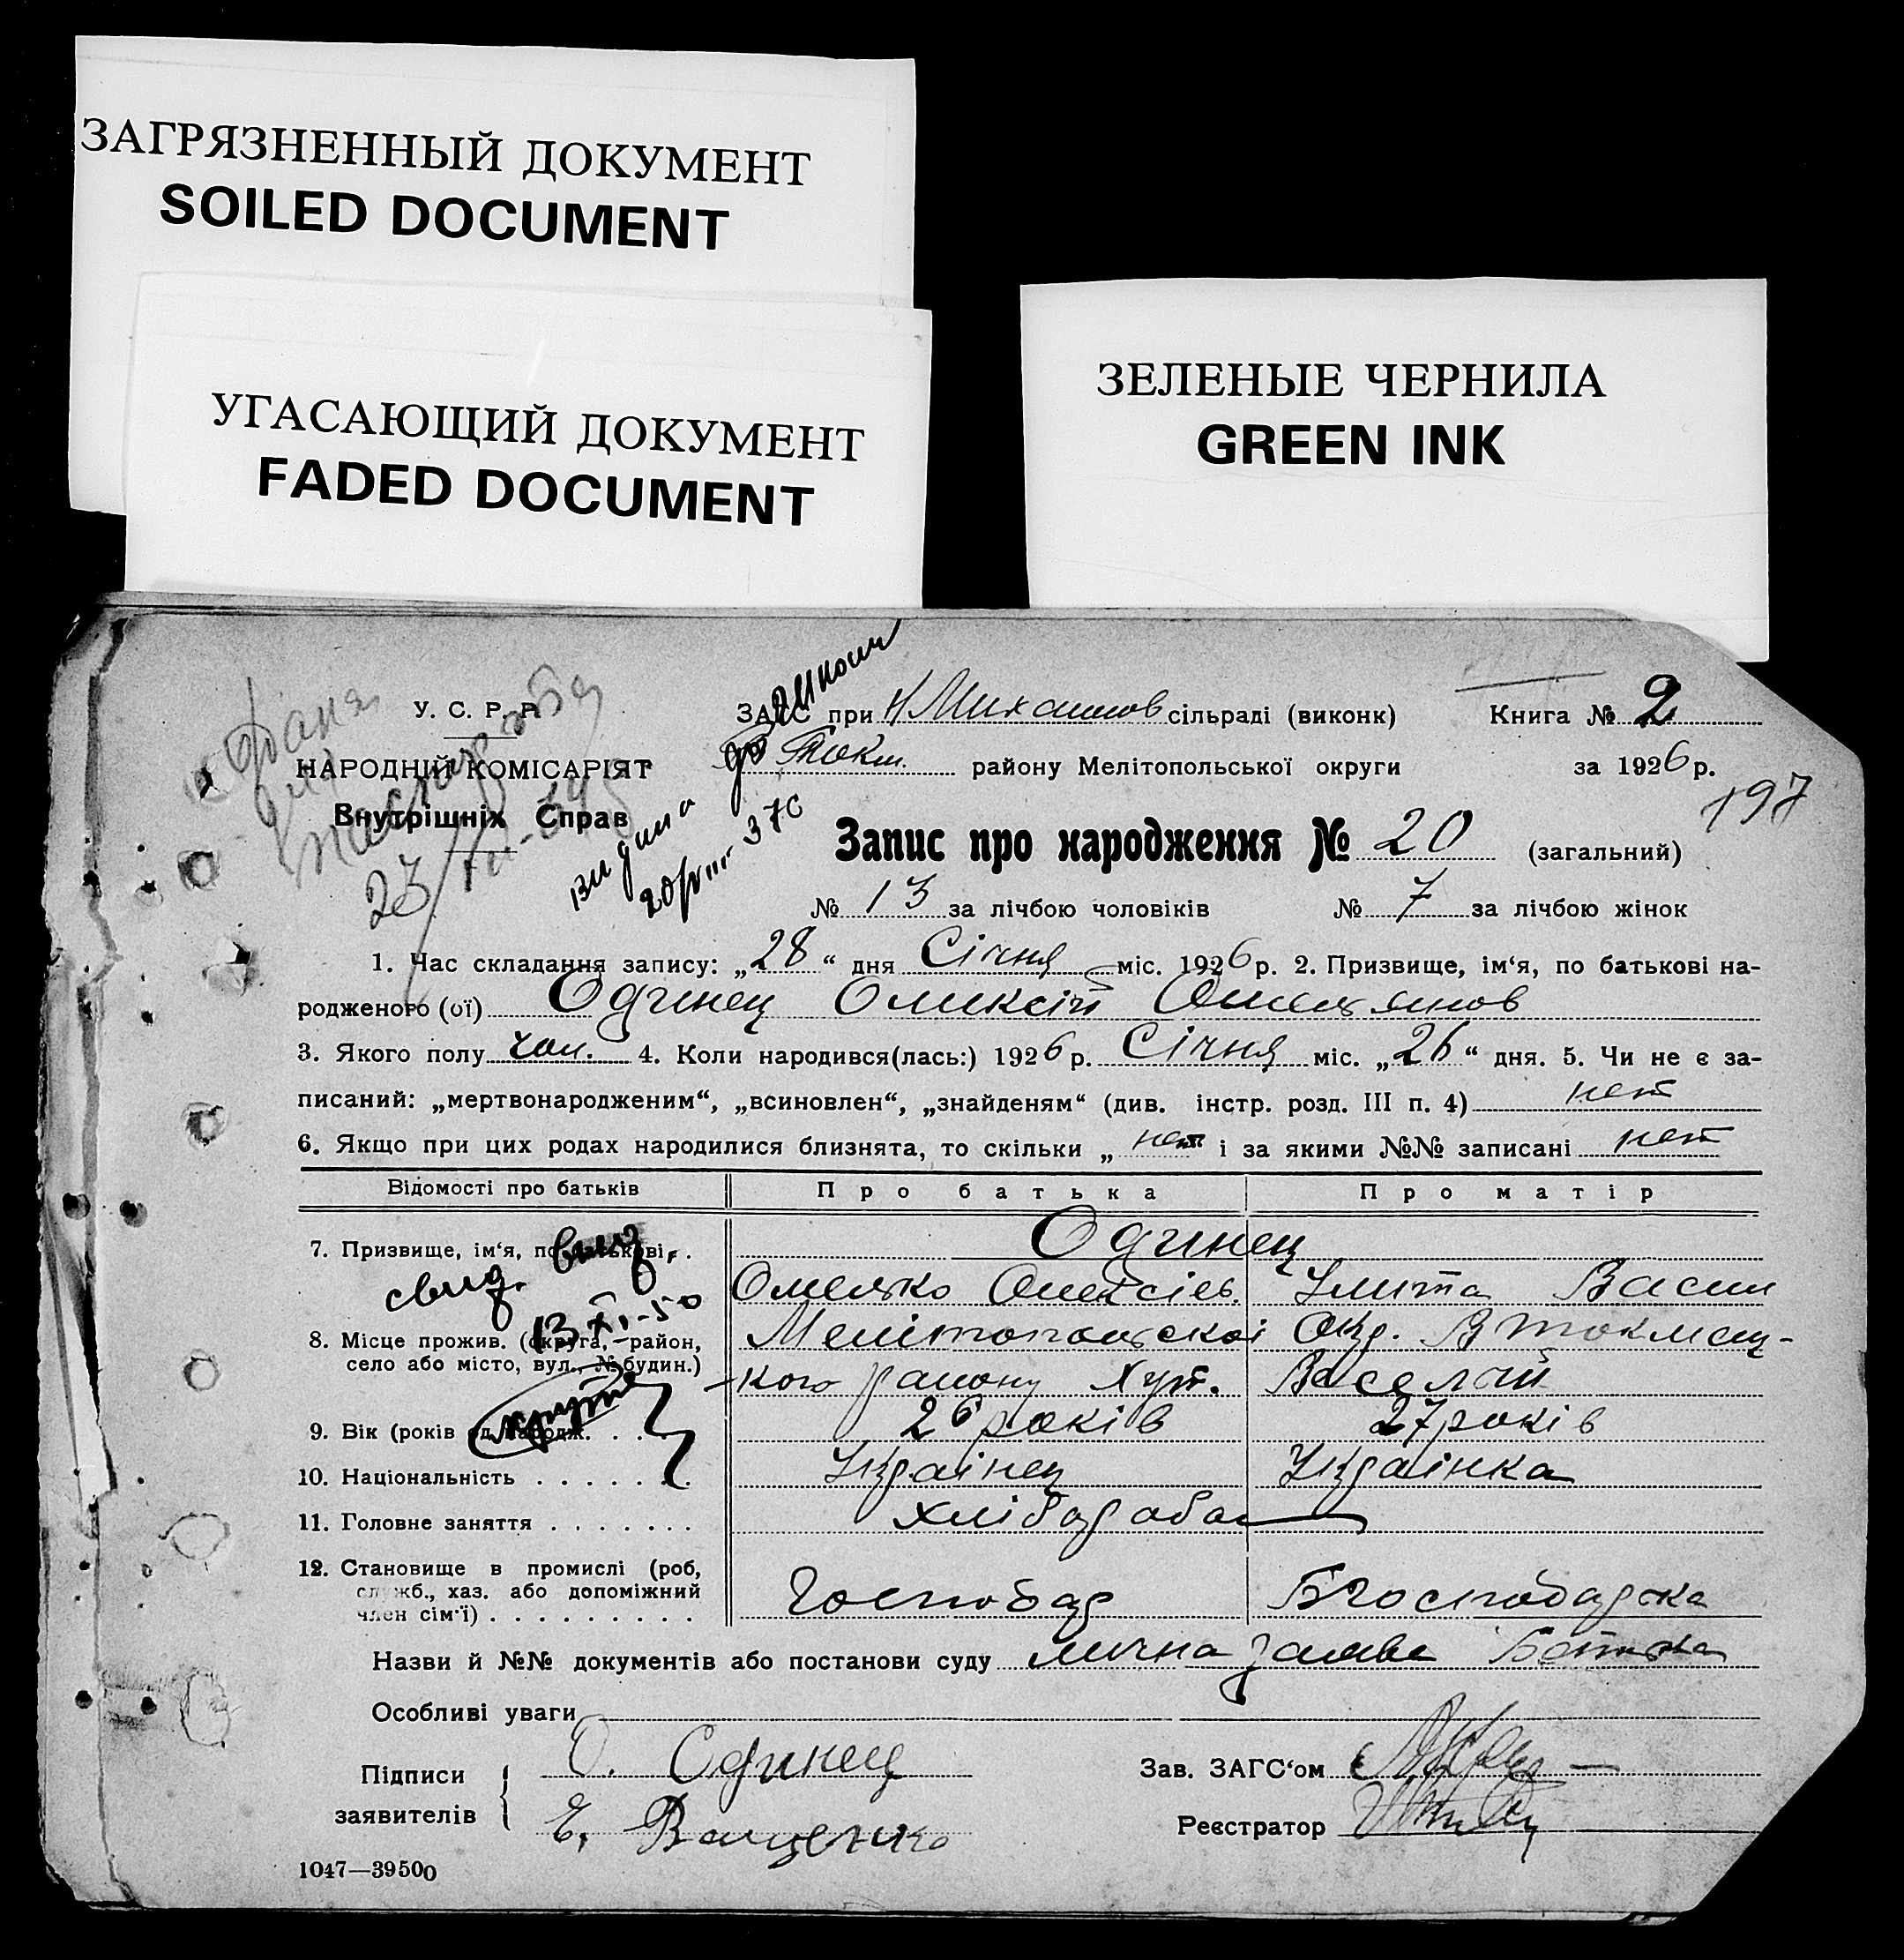 ЗАГРЯЗНЕННЫЙ ДОКУМЕНТ
SOILED DOCUMENT
УГАСАЮЩИЙ ДОКУМЕНТ
FADED DOCUMENT
ЗЕЛЕНЫЕ ЧЕРНИЛА
GREEN INK
У. С. Р. Р.
НАРОДНИЙ КОМІСАРІЯТ
Внутрішніх Справ
ЗАГС при сільраді (виконк) Книга № 2
Токм. району Мелітопольської округи за 1926 р.
197
Запис про народження № 20 (загальний)
№ 13 за лічбою чоловіків № 7 за лічбою жінок
1. Час складання запису: „28“ дня Січня міс. 1926 р. 2. Призвище, ім‘я, по батькові на-
родженого (ої) Одинец Оликсій
3. Якого полу чол. 4. Коли народився(лась:) 1926 р. Січня міс. „26“ дня. 5. Чи не є за-
писаний: „мертвонародженим“, „всиновлен“, „знайденям“ (див. інстр. розд. III п. 4) нет
6. Якщо при цих родах народилися близнята, то скільки „ нет і за якими №№ записані нет
Відомості про батьків Про батька Про матір
7. Призвище, ім‘я, по батькові, . Одинец
Омелько Олексієв. Улита Васил
свид. выд.
13 XI-50
8. Місце прожив. (округа, район,
село або місто, вул., № будин.)
Мелітопольскоі Окр. В Токмац-
-кого району Хут. Веселий
9. Вік (років од народж. . . . 26 років 27 років
10. Національність . . . . . . . Українец Українка
11. Головне заняття . . . . . . . хлібароба
12. Становище в промислі (роб,
служб., хаз. або допоміжний
член сім‘ї) . . . . . . . . . Господар Господарка
Назви й №№ документів або постанови суду лична заява Батька
Особливі уваги
Підписи
заявителів
О. Одинец
Е. Ващенко
Зав. ЗАГС‘ом
Реєстратор
1047—39500